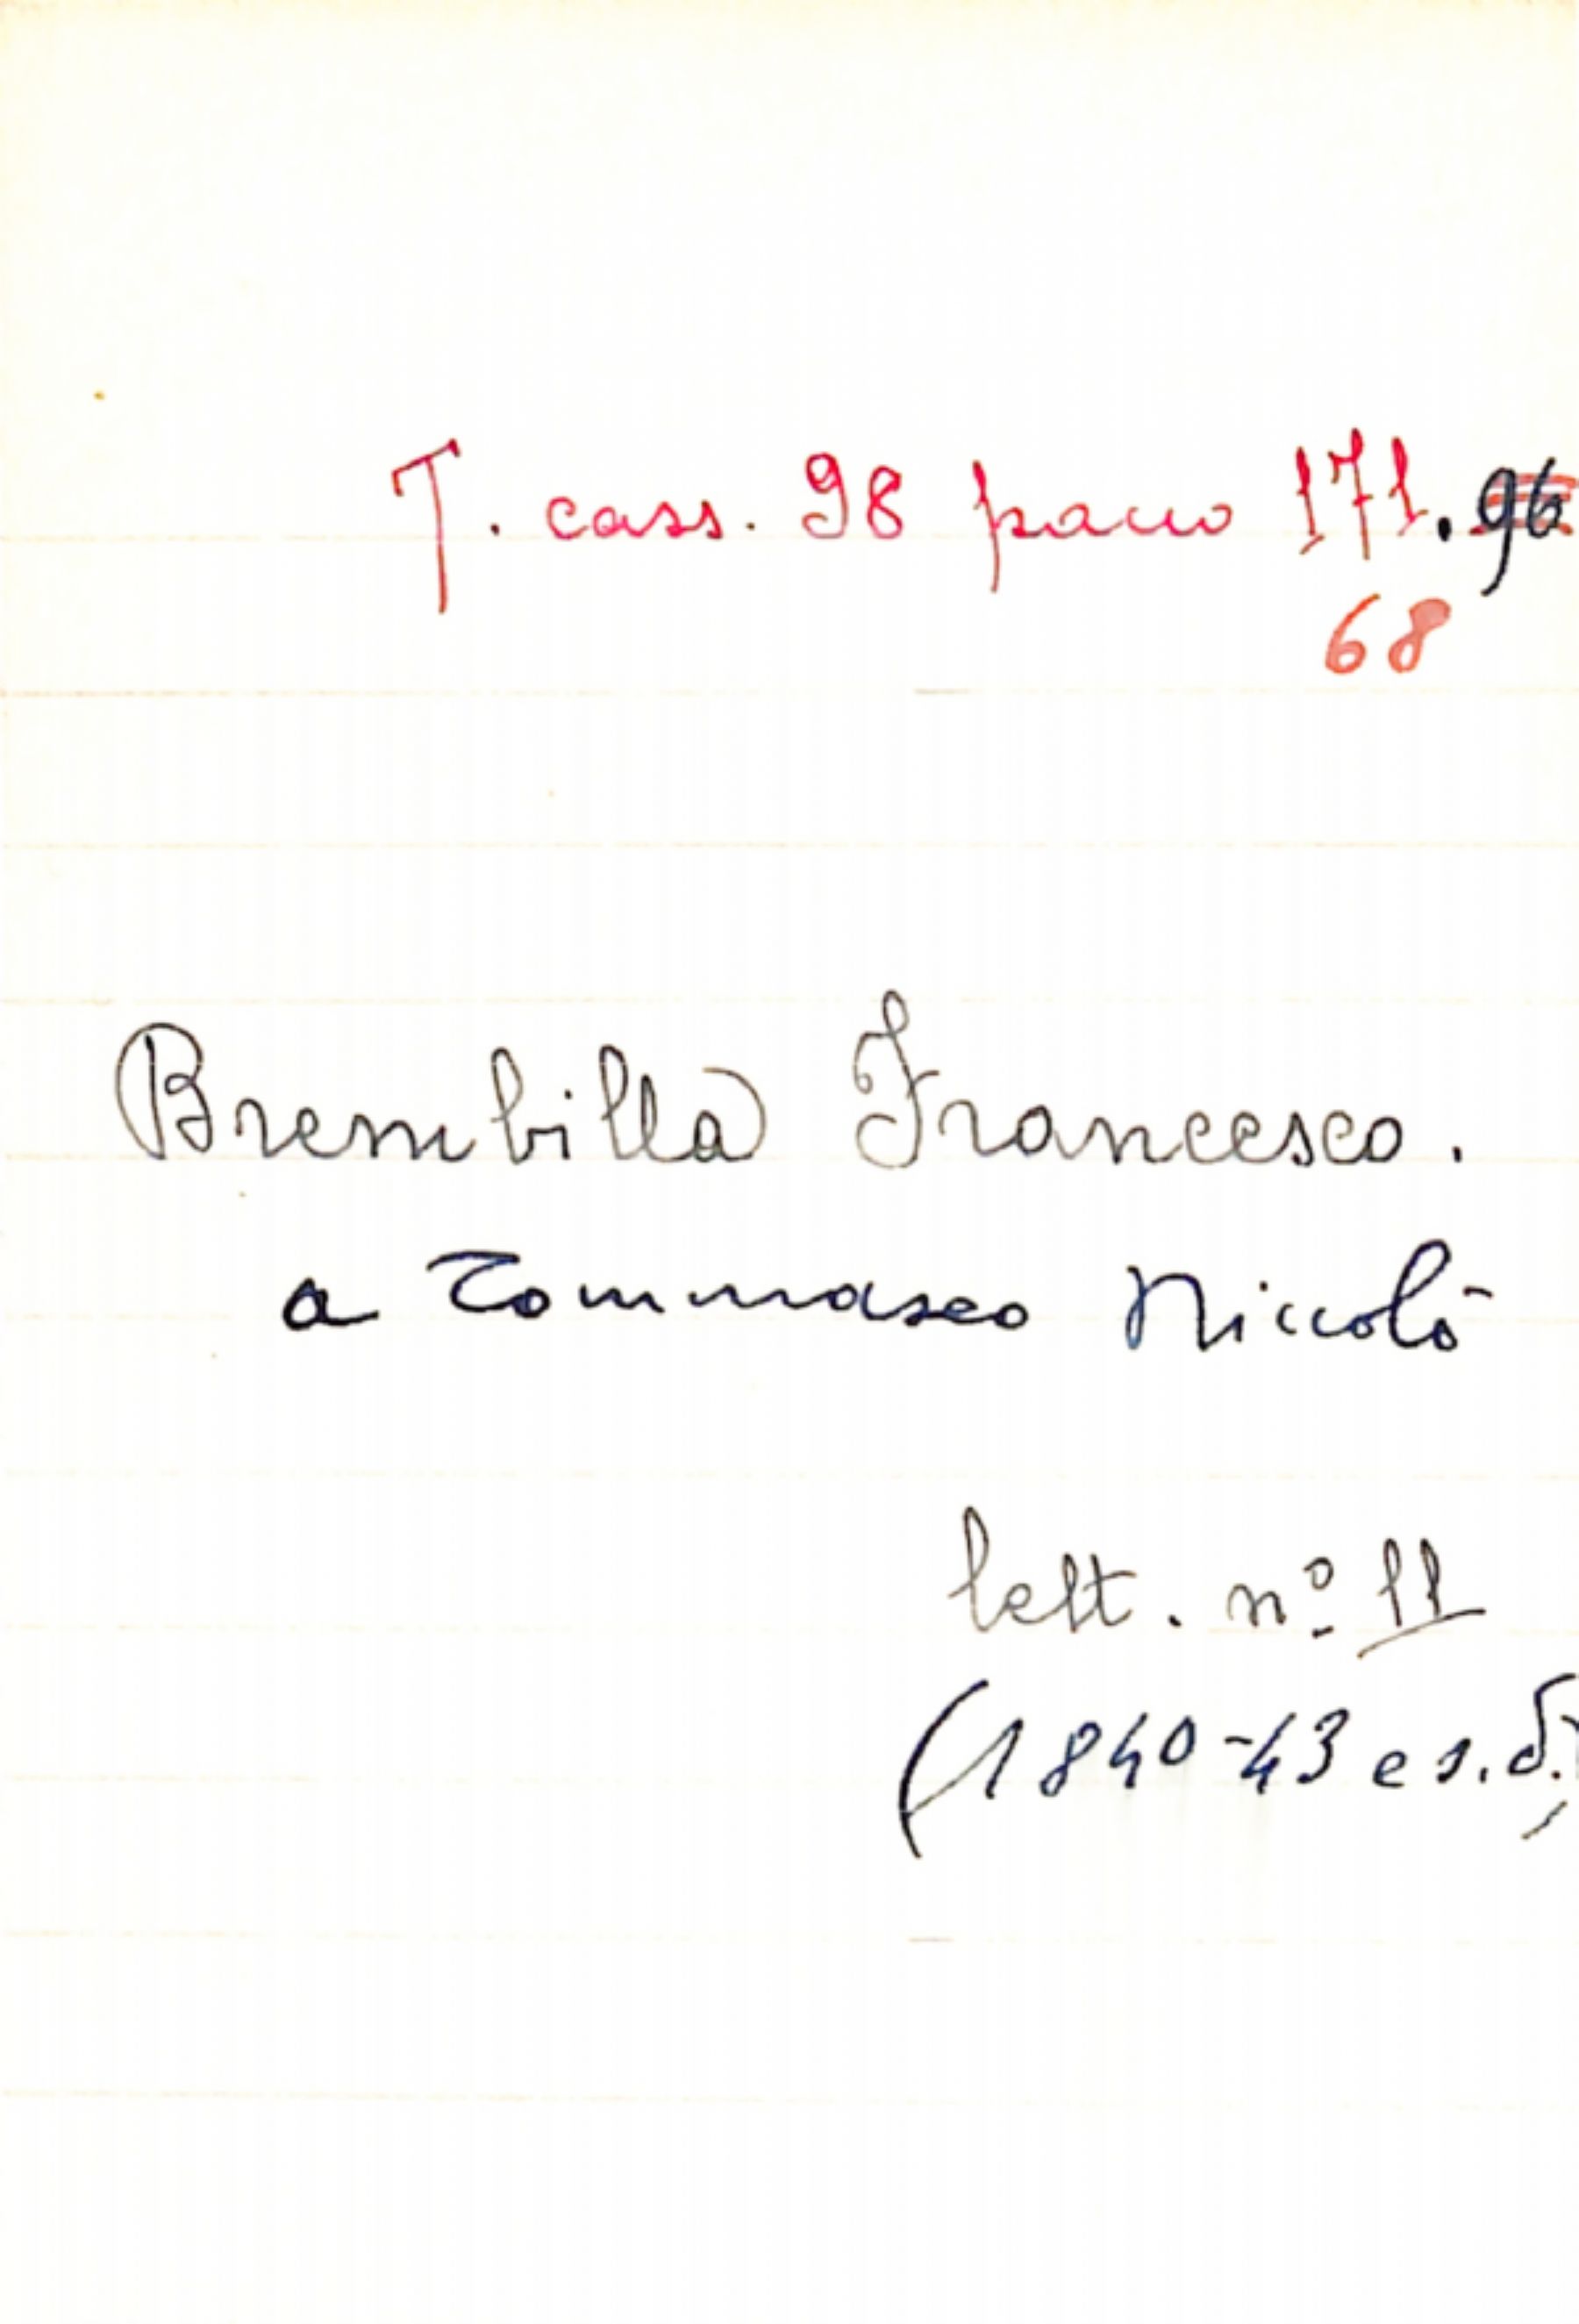 T. cass. 98 pacco 171. 96
68
Brembilla Francesco.
a Tommaseo Niccolò
lett. nº 11
(1840-43 e s.d.)